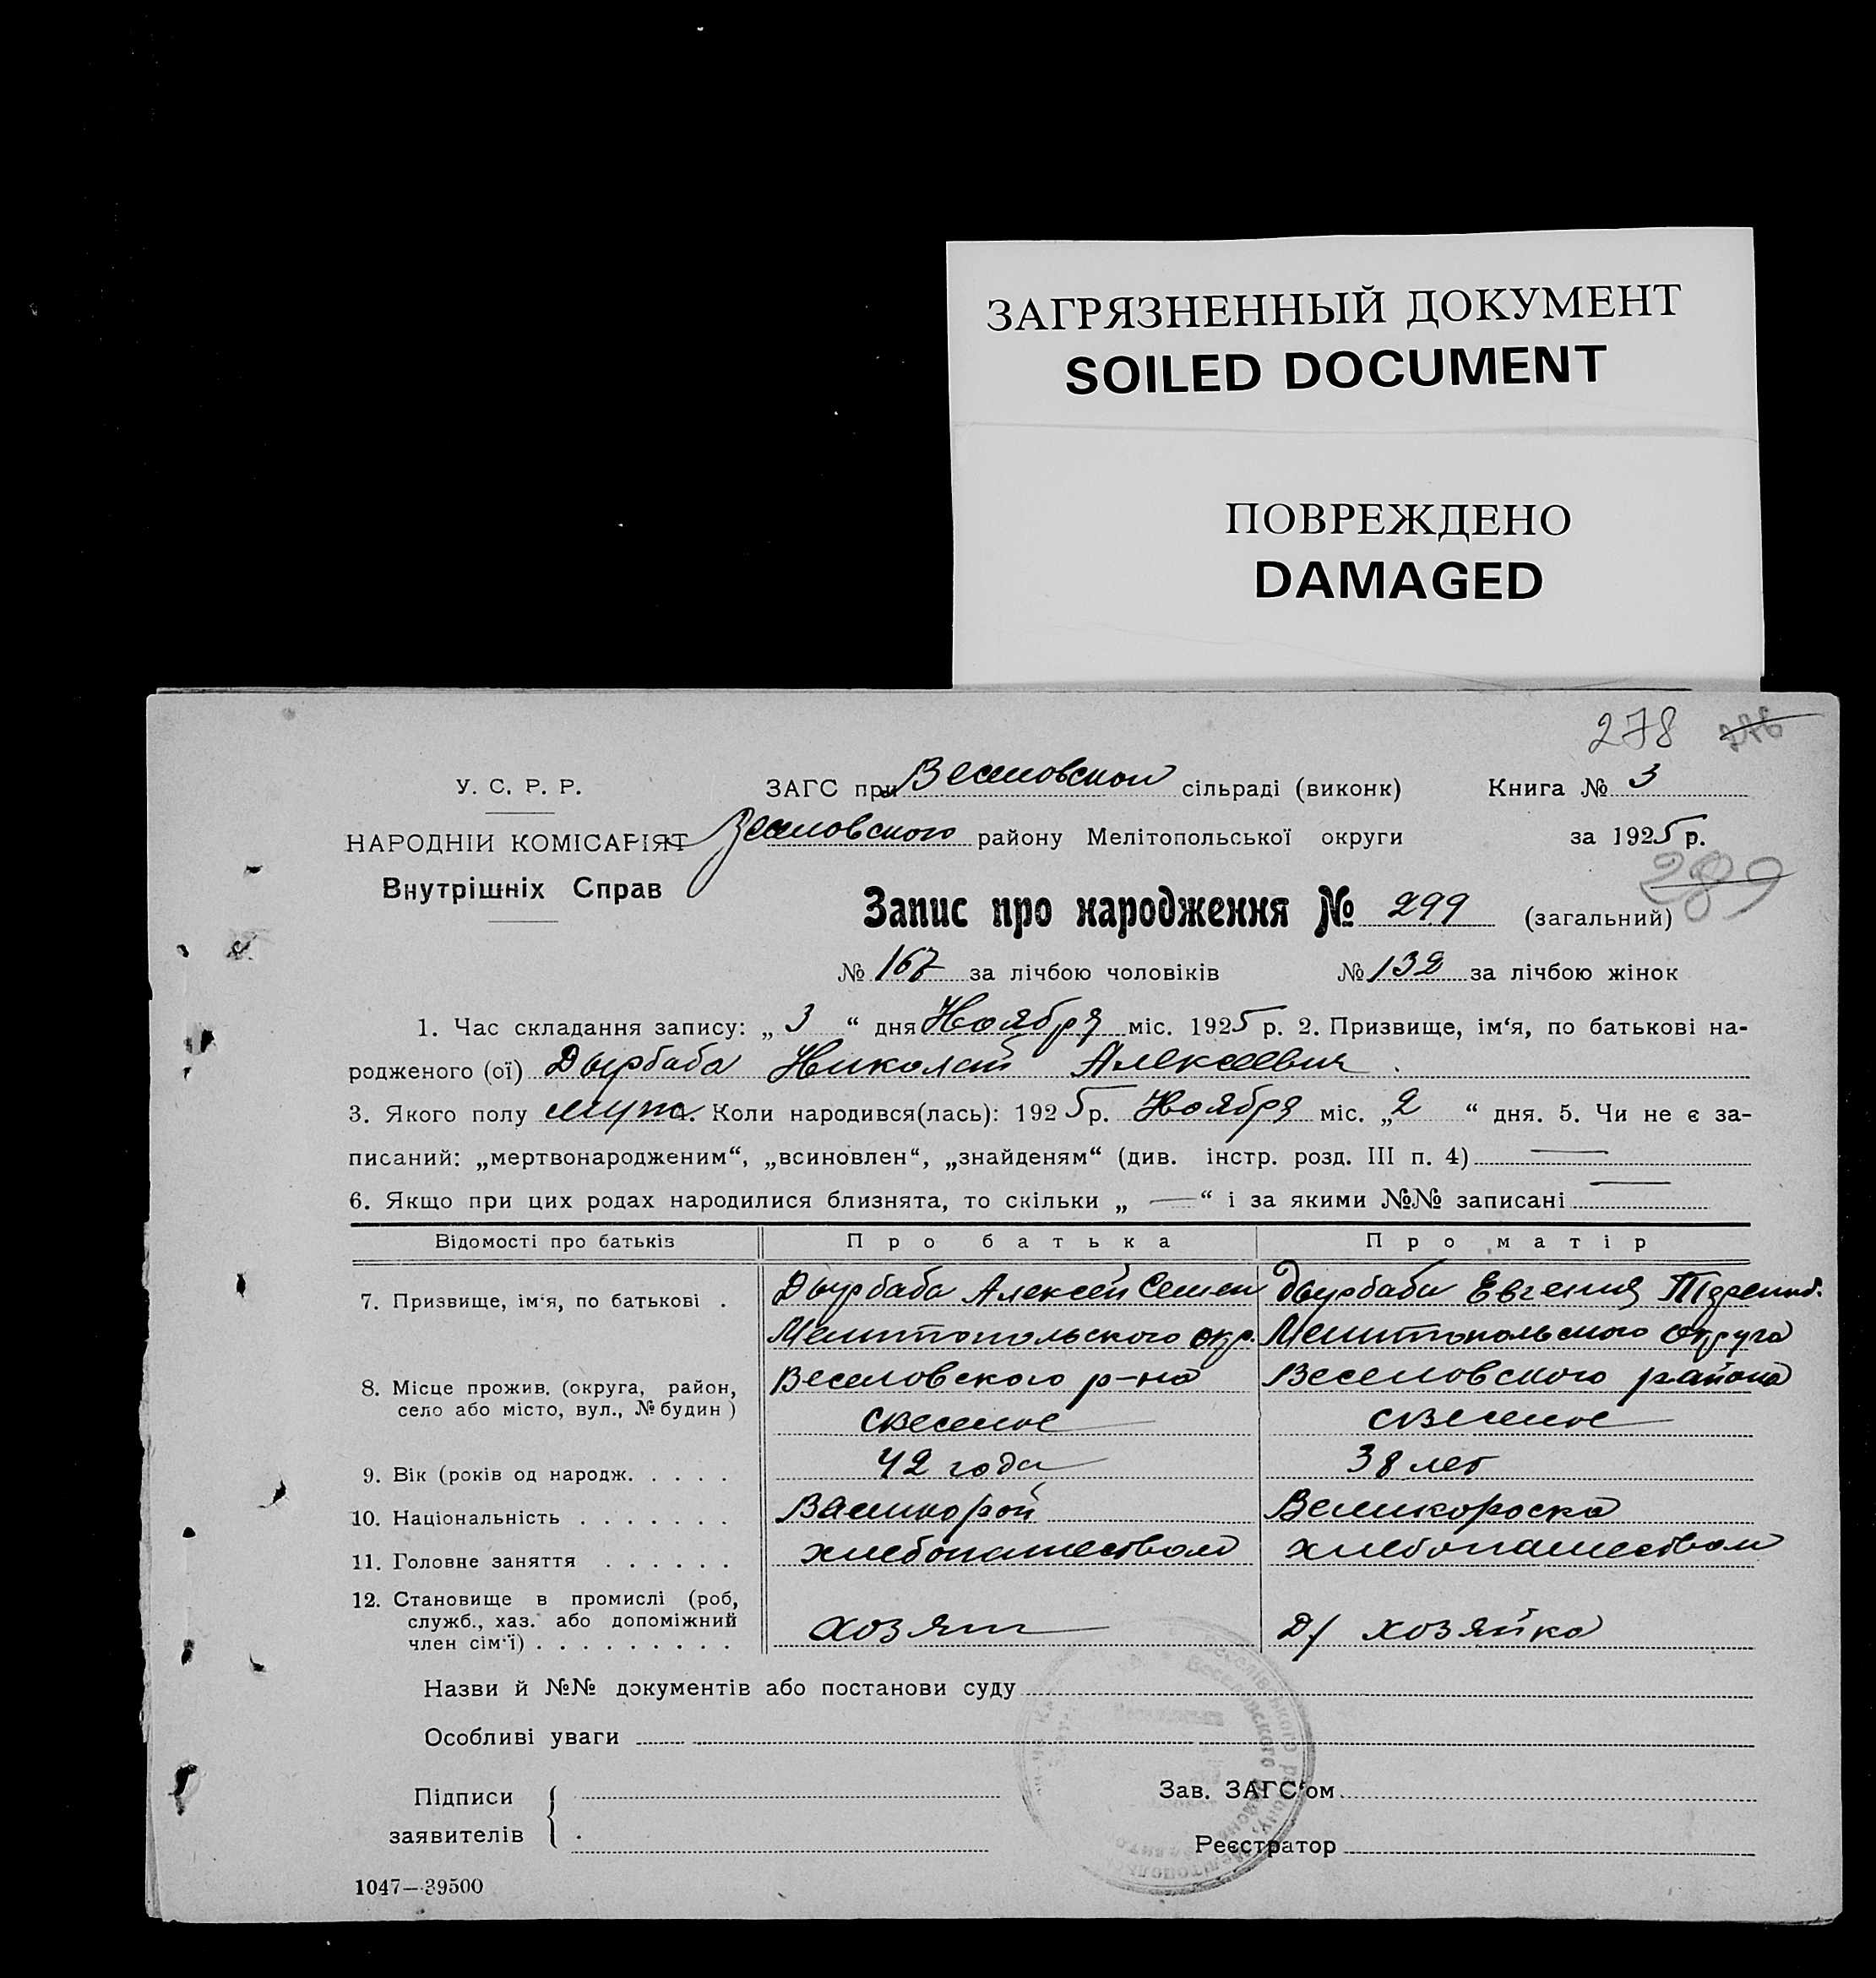 ЗАГРЯЗНЕННЫЙ ДОКУМЕНТ
SOILED DOCUMENT
ПОВРЕЖДЕНО
DAMAGED
278
У. С. Р. Р.
ЗАГС при Веселовском сільраді (виконк) Книга № 3
НАРОДНІЙ КОМІСАРІЯТ
Веселовского району Мелітопольської округи за 1925 р.
289
Внутрішніх Справ
Запис про народження № 299 (загальний)
№ 167 за лічбою чоловіків № 132 за лічбою жінок
1. Час складання запису: „ 3 “ дня Ноября міс. 1925 р. 2. Призвище, ім‘я, по батькові на-
родженого (ої) Дырбаба Николай Алексеевич
3. Якого полу муж 4. Коли народився(лась): 1925 р. Ноября міс. „ 2 “ дня. 5. Чи не є за-
писаний: „мертвонародженим“, „всиновлен“, „знайденям“ (див. інстр. розд. III п. 4) —
6. Якщо при цих родах народилися близнята, то скільки „ — “ і за якими №№ записані —
Відомості про батьків Про батька Про матір
7. Призвище, ім‘я, по батькові . Дырбаба Алексей Семен Дырбаба Евгения
Мелитопольского окр. Мелитопольского округа
8. Місце прожив. (округа, район, село або місто, вул., № будин ) Веселовского р-на Веселовского района
с Веселое с Веселое
9. Вік (років од народж. . . . . 42 года 38 лет
10. Національність . . . . . . . Великорос Великороска
11. Головне заняття . . . . . . хлебопашеством хлебопашеством
12. Становище в промислі (роб,
служб., хаз. або допоміжний
член сім‘ї) . . . . . . . . . хозяин д/ хозяйка
Назви й №№ документів або постанови суду
Особливі уваги
Підписи
заявителів
Зав. ЗАГС‘ом
Реєстратор
1047—39500